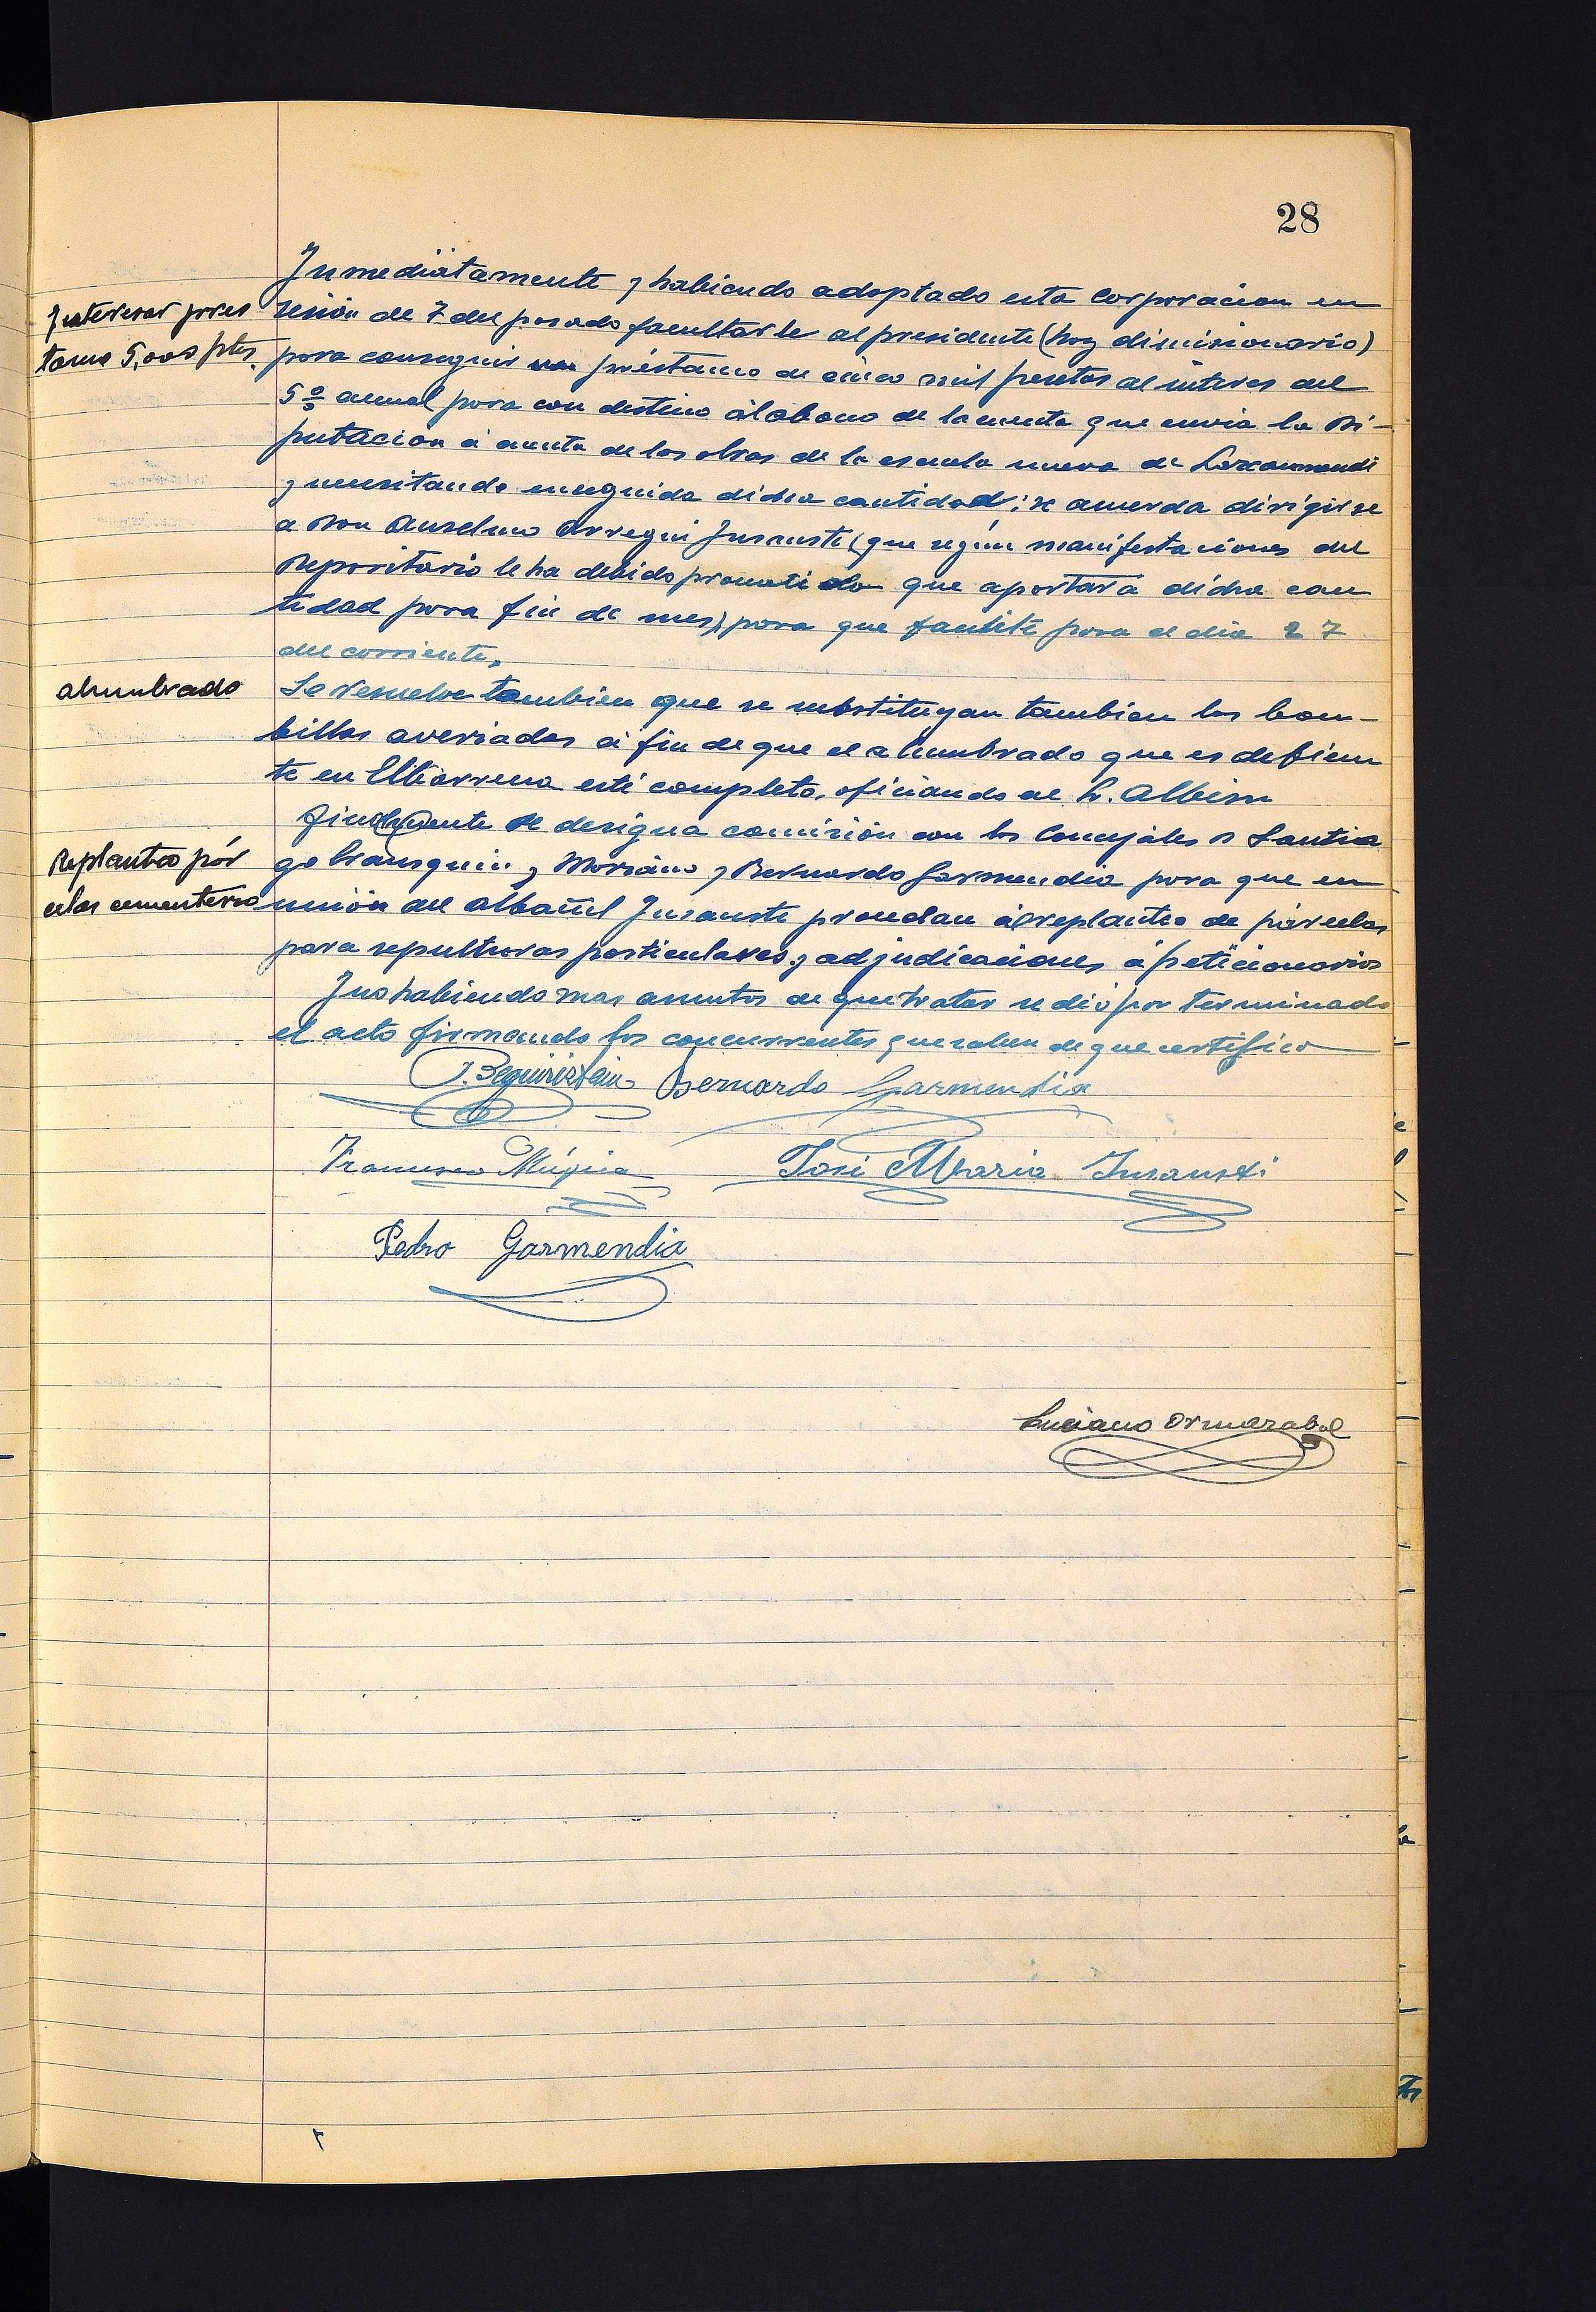 28
Inmediatamente y habiendo adoptado esta corporacion en
Interesar pres
sesión de 7 del pasado facultarle al presidente (hoy dimisionario)
tamo 5,000 ptas.
para conseguir un préstamo de cinco mil pesetas al interes del
5% anual para con destino al abono de la cuenta que envia la Di-
putacion á cuenta de las obras de la escuela nueva de Lazcaomendi
y necesitando enseguida dicha cantidad: se acuerda dirigirse
a Don Anselmo Arregui Insausti (que según manifestaciones del
Depositario le ha debido prometido que aportará dicha can
tidad para fin de mes) para que facilite para el dia 27
del corriente.
alumbrado
Se resuelve tambien que se substituyan tambien las bom-
billas averiadas á fin de que el alumbrado que es deficien
te en Elbarrena esté completo, oficiando al Sr. Albisu
Finalmente se designa comisión con los Concejales D Santia
Replanteo pár
go Iransguin y Mariano y Bernardo Garmendia para que en
celas cementerio
unión del albañil Insausti procedan al replanteo de párcelas
para sepulturas particulares y adjudicaciones á peticionarios
Y no habiendo mas asuntos de que tratar se dió por terminado
el acto firmando los concurrentes que saben de que certifico
J. Beguiristain Bernardo Garmendia
Francisco Múgica José Maria Insausti
Pedro Garmendia
Luciano Ormazabal